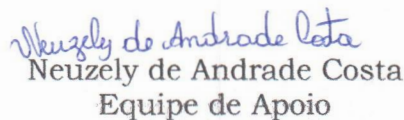 Neuzely de Andrade Costa
Neuzely de Andrade Costa
Equipe de Apoio